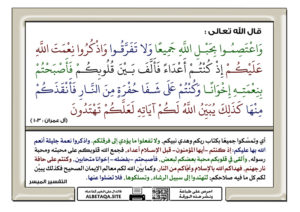 قال الله تعالى :
وَاعْتَصِمُوا بِحَبْلِ اللَّهِ جَمِيعًا وَلَا تَفَرَّقُوا وَاذْكُرُوا نِعْمَتَ اللَّهِ
عَلَيْكُمْ إِذْ كُنتُمْ أَعْدَاءً فَأَلَّفَ بَيْنَ قُلُوبِكُمْ فَأَصْبَحْتُم
بِنِعْمَتِهِ إِخْوَانًا وَكُنتُمْ عَلَىٰ شَفَا حُفْرَةٍ مِّنَ النَّارِ فَأَنقَذَكُم
مِّنْهَا كَذَٰلِكَ يُبَيِّنُ اللَّهُ لَكُمْ آيَاتِهِ لَعَلَّكُمْ تَهْتَدُونَ
(آل عمران : ١٠٣)
أي وتمسكوا جميعا بكتاب ربكم وهدي نبيكم، ولا تفعلوا ما يؤدي إلى فرقتكم. واذكروا نعمة جليلة أنعم
الله بها عليكم: إذ كنتم -أيها المؤمنون- قبل الإسلام أعداء، فجمع الله قلوبكم على محبته ومحبة
رسوله، وألقى في قلوبكم محبة بعضكم لبعض، فأصبحتم -بفضله- إخوانا متحابين، وكنتم على حافة
نار جهنم، فهداكم الله بالإسلام ونجاكم من النار. وكما بين الله لكم معالم الإيمان الصحيح فكذلك يبين
لكم كل ما فيه صلاحكم; لتهتدوا إلى سبيل الرشاد، وتسلكوها، فلا تضلوا عنها.
التفسير الميسر
ALBETAQA.SITE